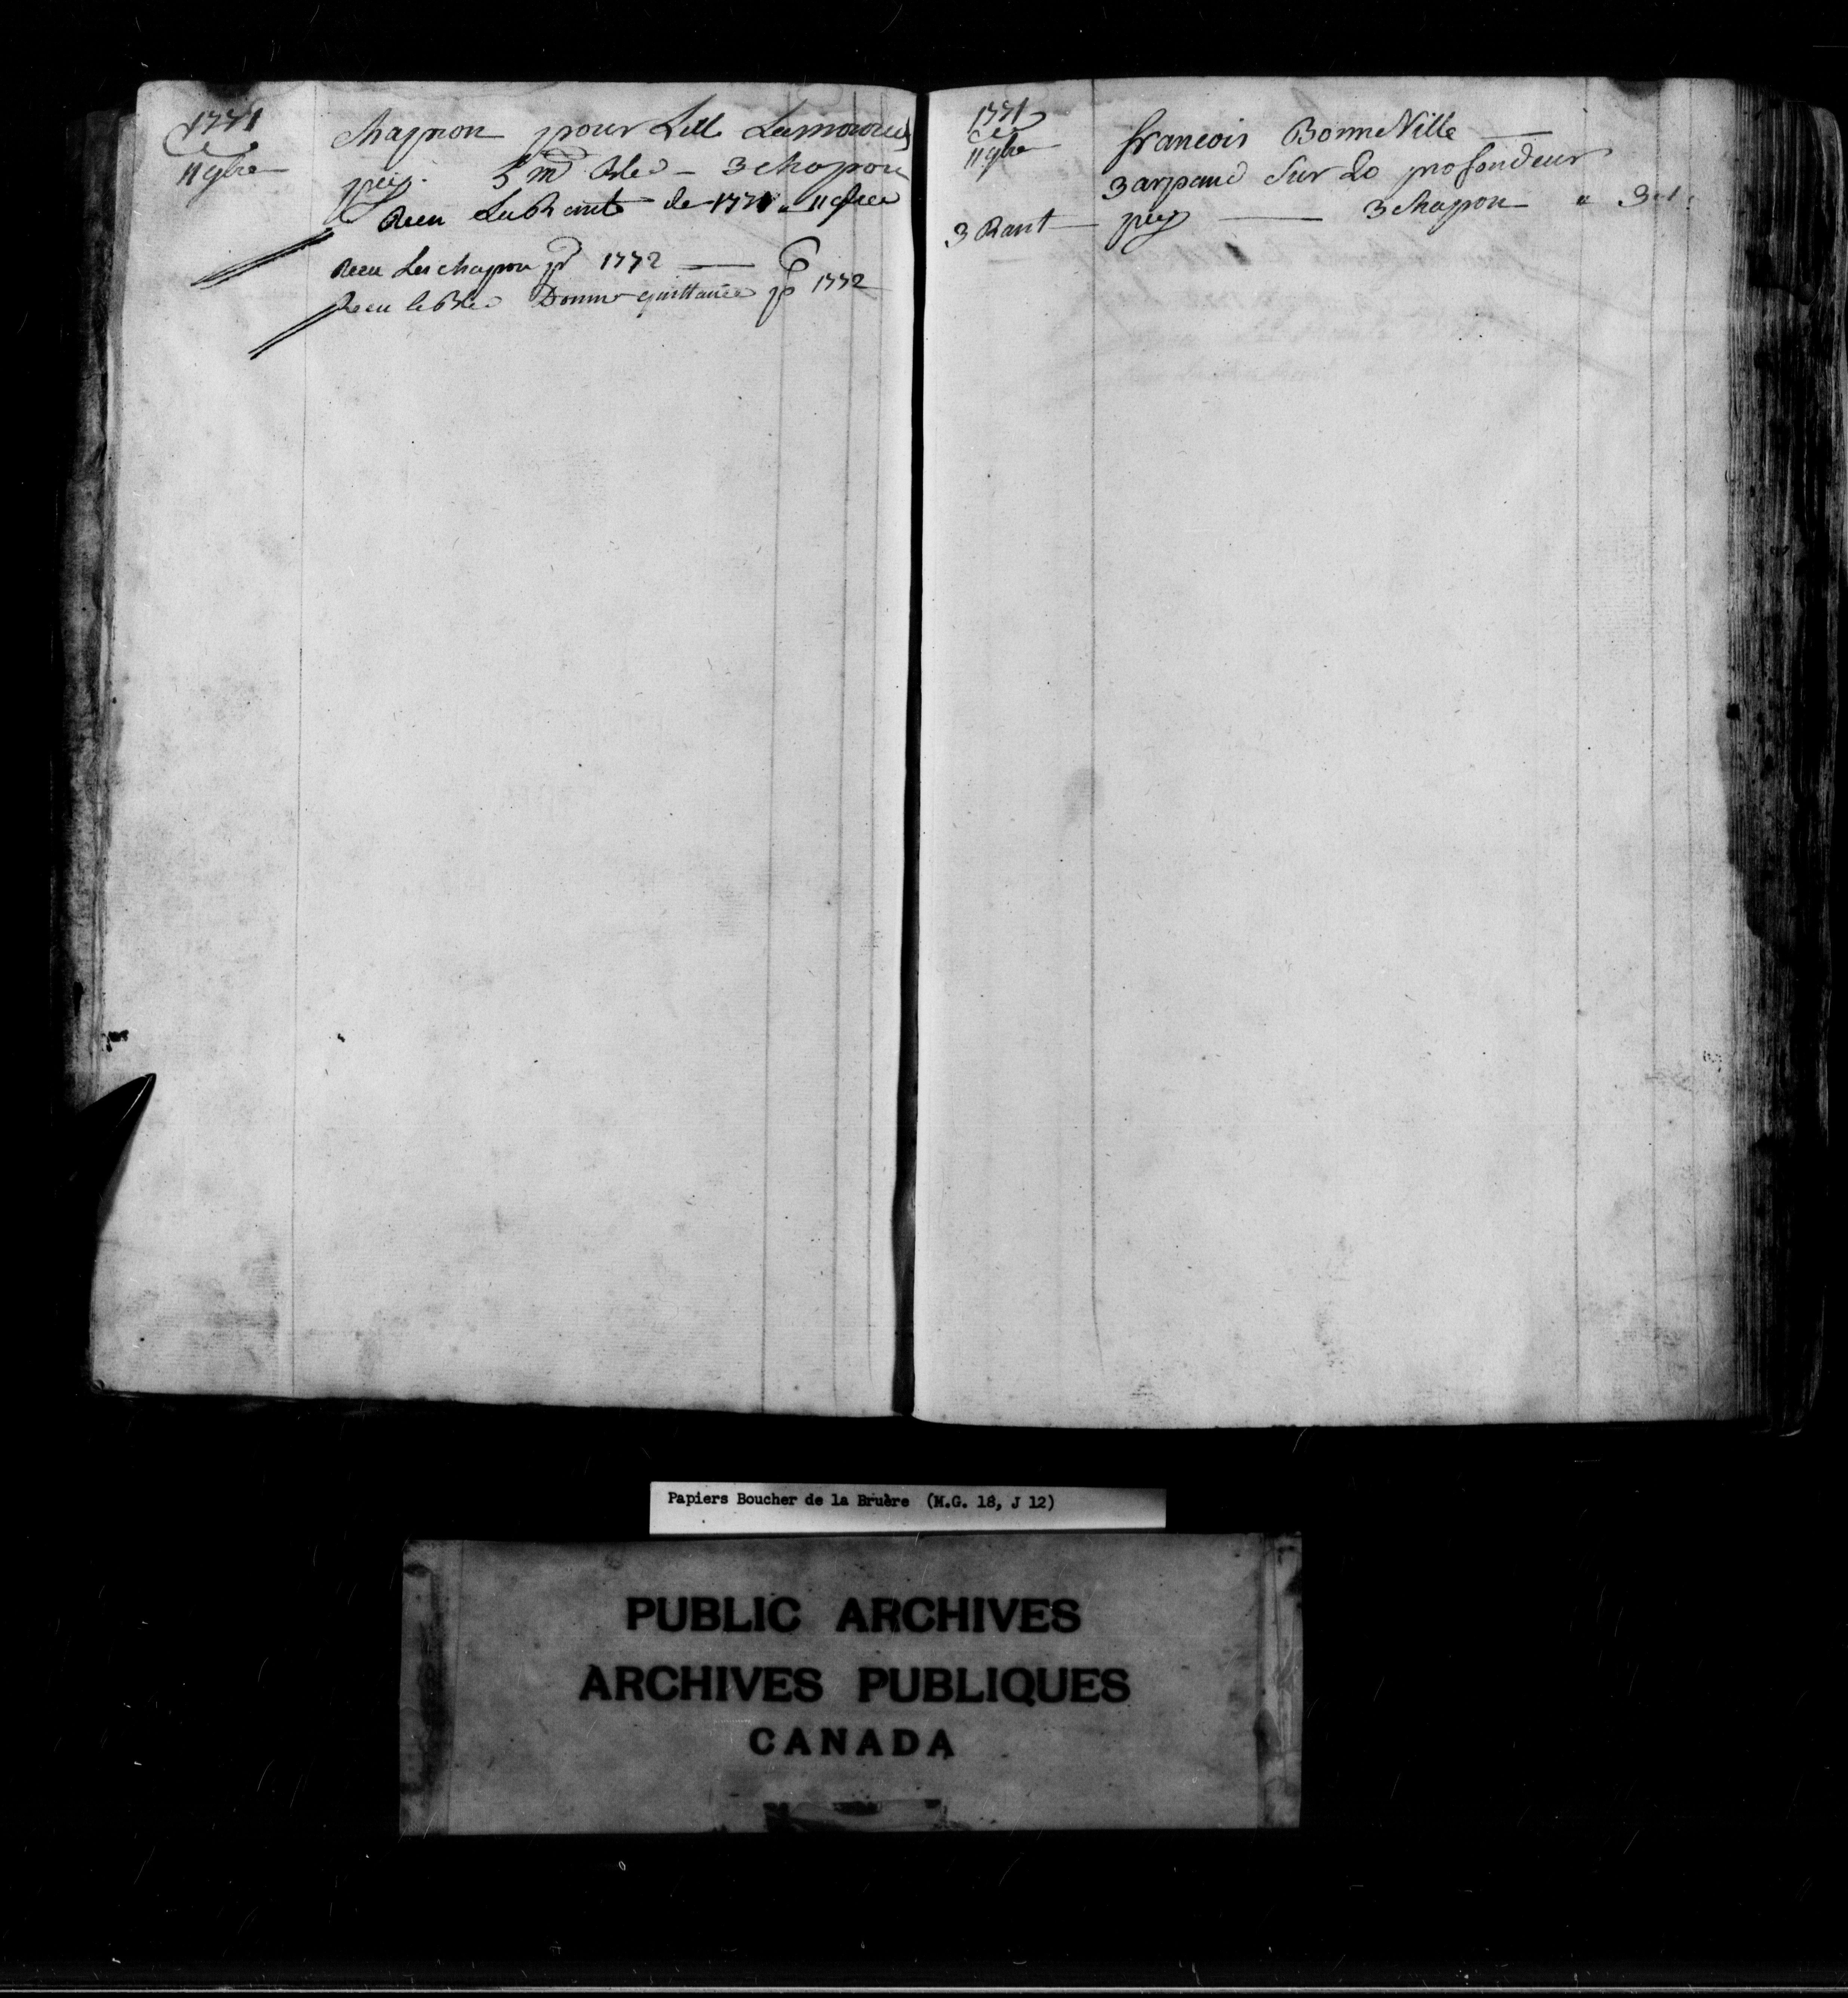 1771
11 9bre
chapron pour Lill Lamoureu
pey. 5 md Blé – 3 chapon
Receu La Rante de 1771 " 11 9bre
Receu Les chapon pr 1772
Receu le Blé Donner quittance pr 1772
1771
11 9bre
francois BonneVille
3 arpand Sur La profondeur
3 Rant pey 3 chapon " 3
Papiers Boucher de la Bruère (M.G. 18, J 12)
PUBLIC ARCHIVES
ARCHIVES PUBLIQUES
CANADA